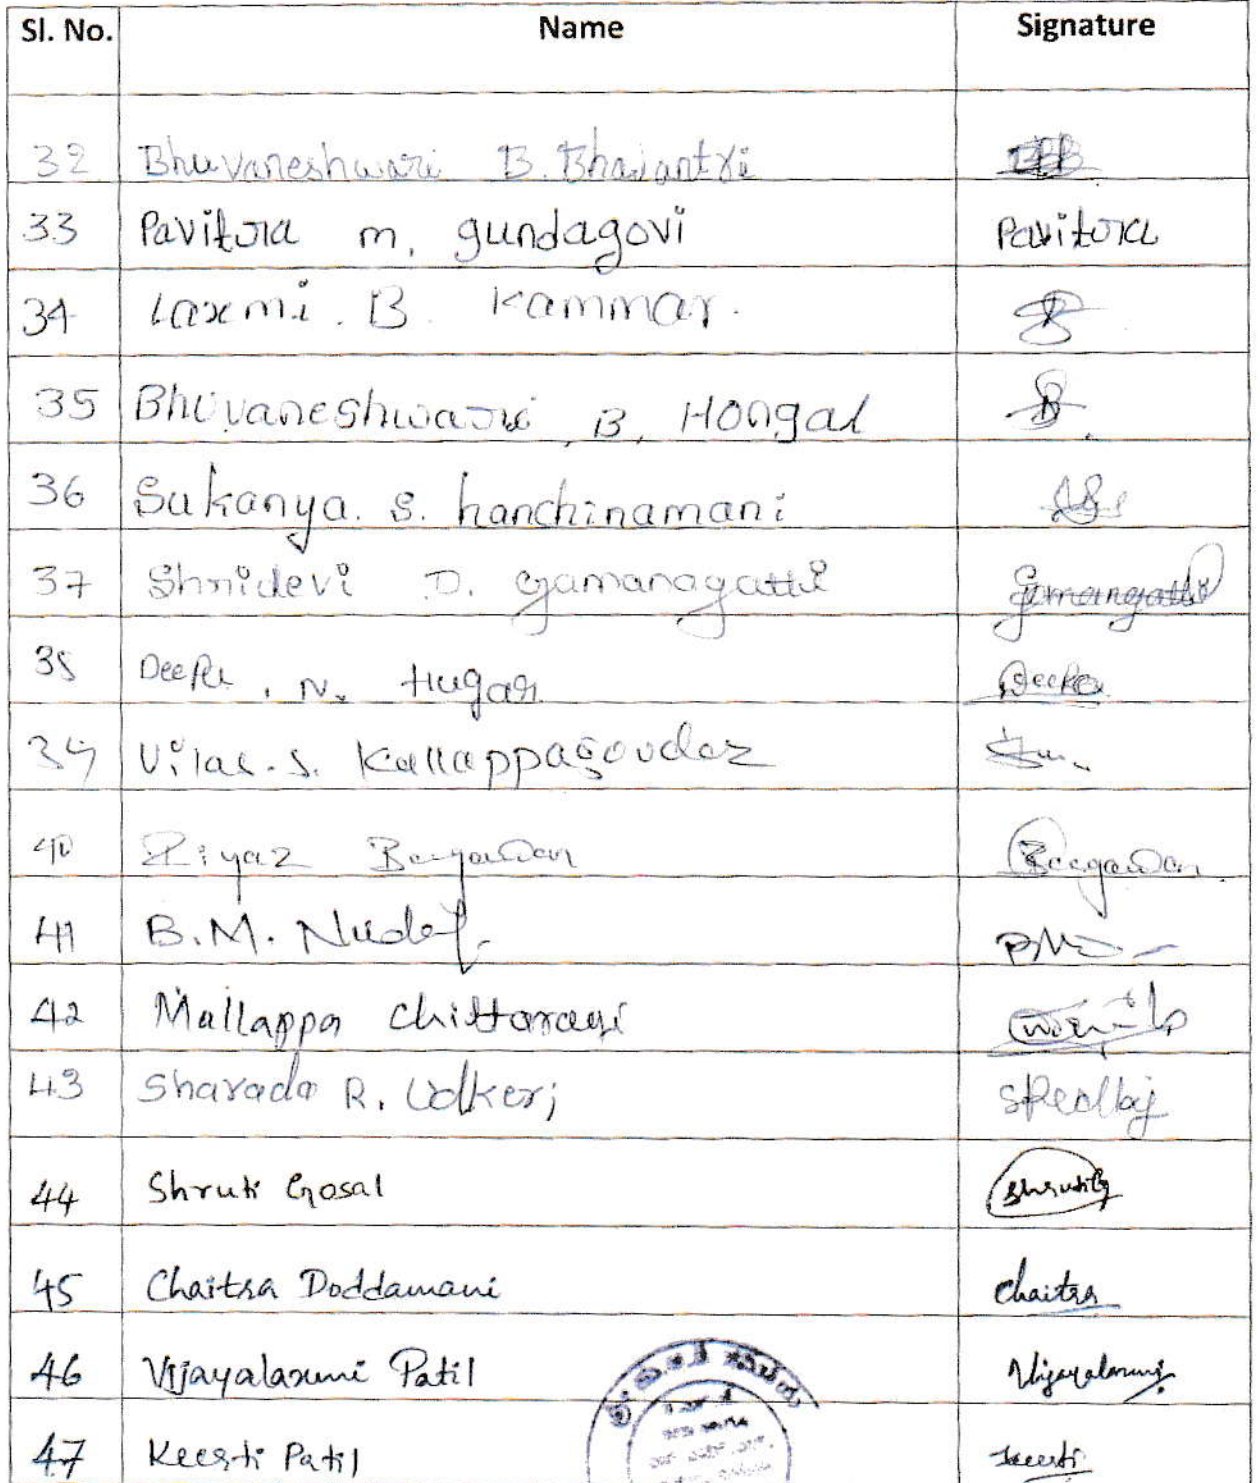 Sl. No. Name Signature
32 Bhuvaneshwari B. Bhajantri
33 Pavitra m. gundagovi Pavitra
34 Laxmi. B. Kammar.
35 Bhuvaneshwari B. Hongal
36 Sukanya. S. hanchinamani
37 Shridevi D. gamanagatti gamangatti
38 Deepa . N. Hugar Deepa
39 Vilas. S. Kallappagoudar
40 Riyaz Beegawan Beegawan
41 B.M. Nudaf.
42 Mallappa Chittaragi
43 Sharada R. Udkeri
44 Shruti Gosal Shrutig
45 Chaitra Doddamani Chaitra
46 Vijayalaxmi Patil Vijayalaxmi
47 Keerti Patil Keerti